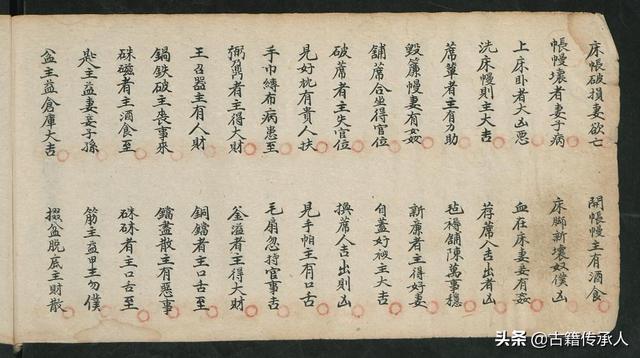 床帳破損妻欲亡 開帳幔主有酒食
帳幔壞者妻子病 床脚新壞奴僕凶
上床卧者大凶惡 血在床妻妾有姦
洗床幔則主大吉 荐席人吉出者凶
蓆者主有力助 毡褥舖陳萬事穩
毀簾慢妻有姦 新簾者主得好妻
舖席合坐得官位 自蓋好被主大吉
破蓆者主失官位 席人吉出則凶
見好枕有貴人扶 見手帕主有口舌
手巾縛布病患至 毛扇忽持官事吉
者主得大財 釜溢者主得大財
王召器主有人財 銅鐺者主口舌至
鍋鉄破主喪事來 鐺盡散主有惡事
硃磁者主酒食至 硃者主口舌至
匙主益妻妾子孫 筯主益田主勿僕
盆主益倉庫大吉 掇盆脱底主財散
头条 @古籍传承人